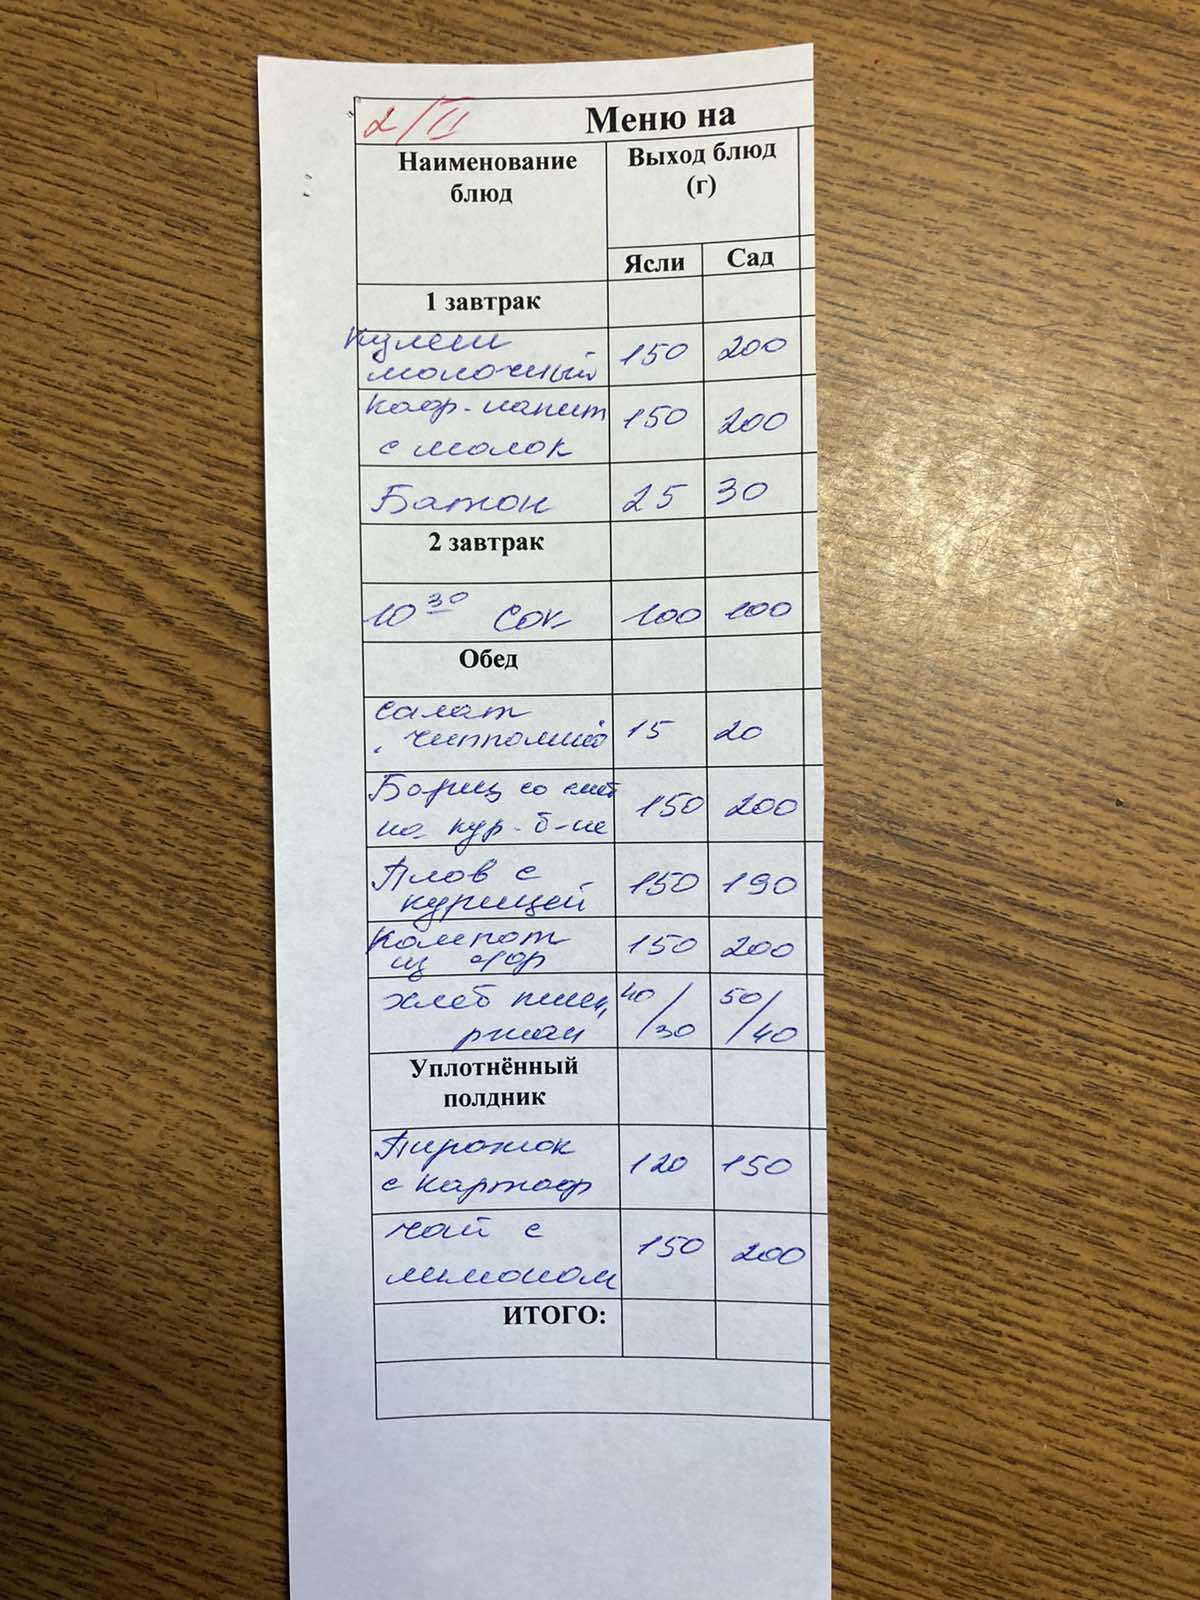 2/II Меню на
Наименование Выход блюд
блюд (г)
Ясли Сад
1 завтрак
Кулеш
молочный 150 200
Коф-напит
с молок 150 200
Батон 25 30
2 завтрак
10 30 Сок 100 100
Обед
Салат
чипполино 15 20
Борщ со смет
на кур-б-не 150 200
Плов с
курицей 150 190
Компот
из с/фр 150 200
хлеб пшен, 40/30 50/40
ржан
Уплотнённый
полдник
Пирожок
с картоф 120 150
чай с
лимоном 150 200
ИТОГО: